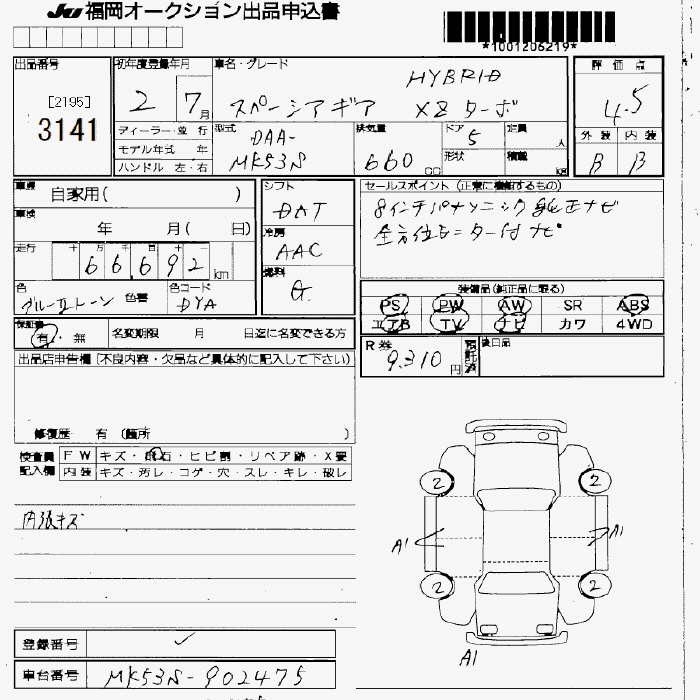 JU 福岡オークション出品申込書
*1001206219*
出品番号 [2195] 3141
初年度登録年月 2 7月
車名・グレード HYBRID
スペーシアギア XZターボ
評価点 4.5
外装 B 内装 B
ディーラー・並行
モデル年式 年
ハンドル 左・右
型式 DAA-MK53S
排気量 660 CC
ドア 5 形状
定員 人
積載 kg
車歴 自家用( )
車検 年 月( 日)
走行 十 万 千 百 十 一
66,692 km
色 ブルーIIトーン 色替
色コード DYA
シフト DAT
冷房 AAC
燃料 G
セールスポイント (正常に機能するもの)
8インチパナソニック純正ナビ
全方位モニター付ナビ
装備品(純正品に限る)
PS PW AW SR ABS
エアB TV ナビ カワ 4WD
保証書 有・無
名変期限 月 日迄に名変できる方
R券 9,310円 預託済
後日品
出品店申告欄 [不良内容・欠品など具体的に記入して下さい]
修復歴 有 (箇所 )
検査員記入欄
FW キズ・飛石・ヒビ割・リペア跡・X要
内装 キズ・汚レ・コゲ・穴・スレ・キレ・破レ
内張キズ
2 2
A1 A1
2 2
A1
登録番号 ✓
車台番号 MK53S-902475